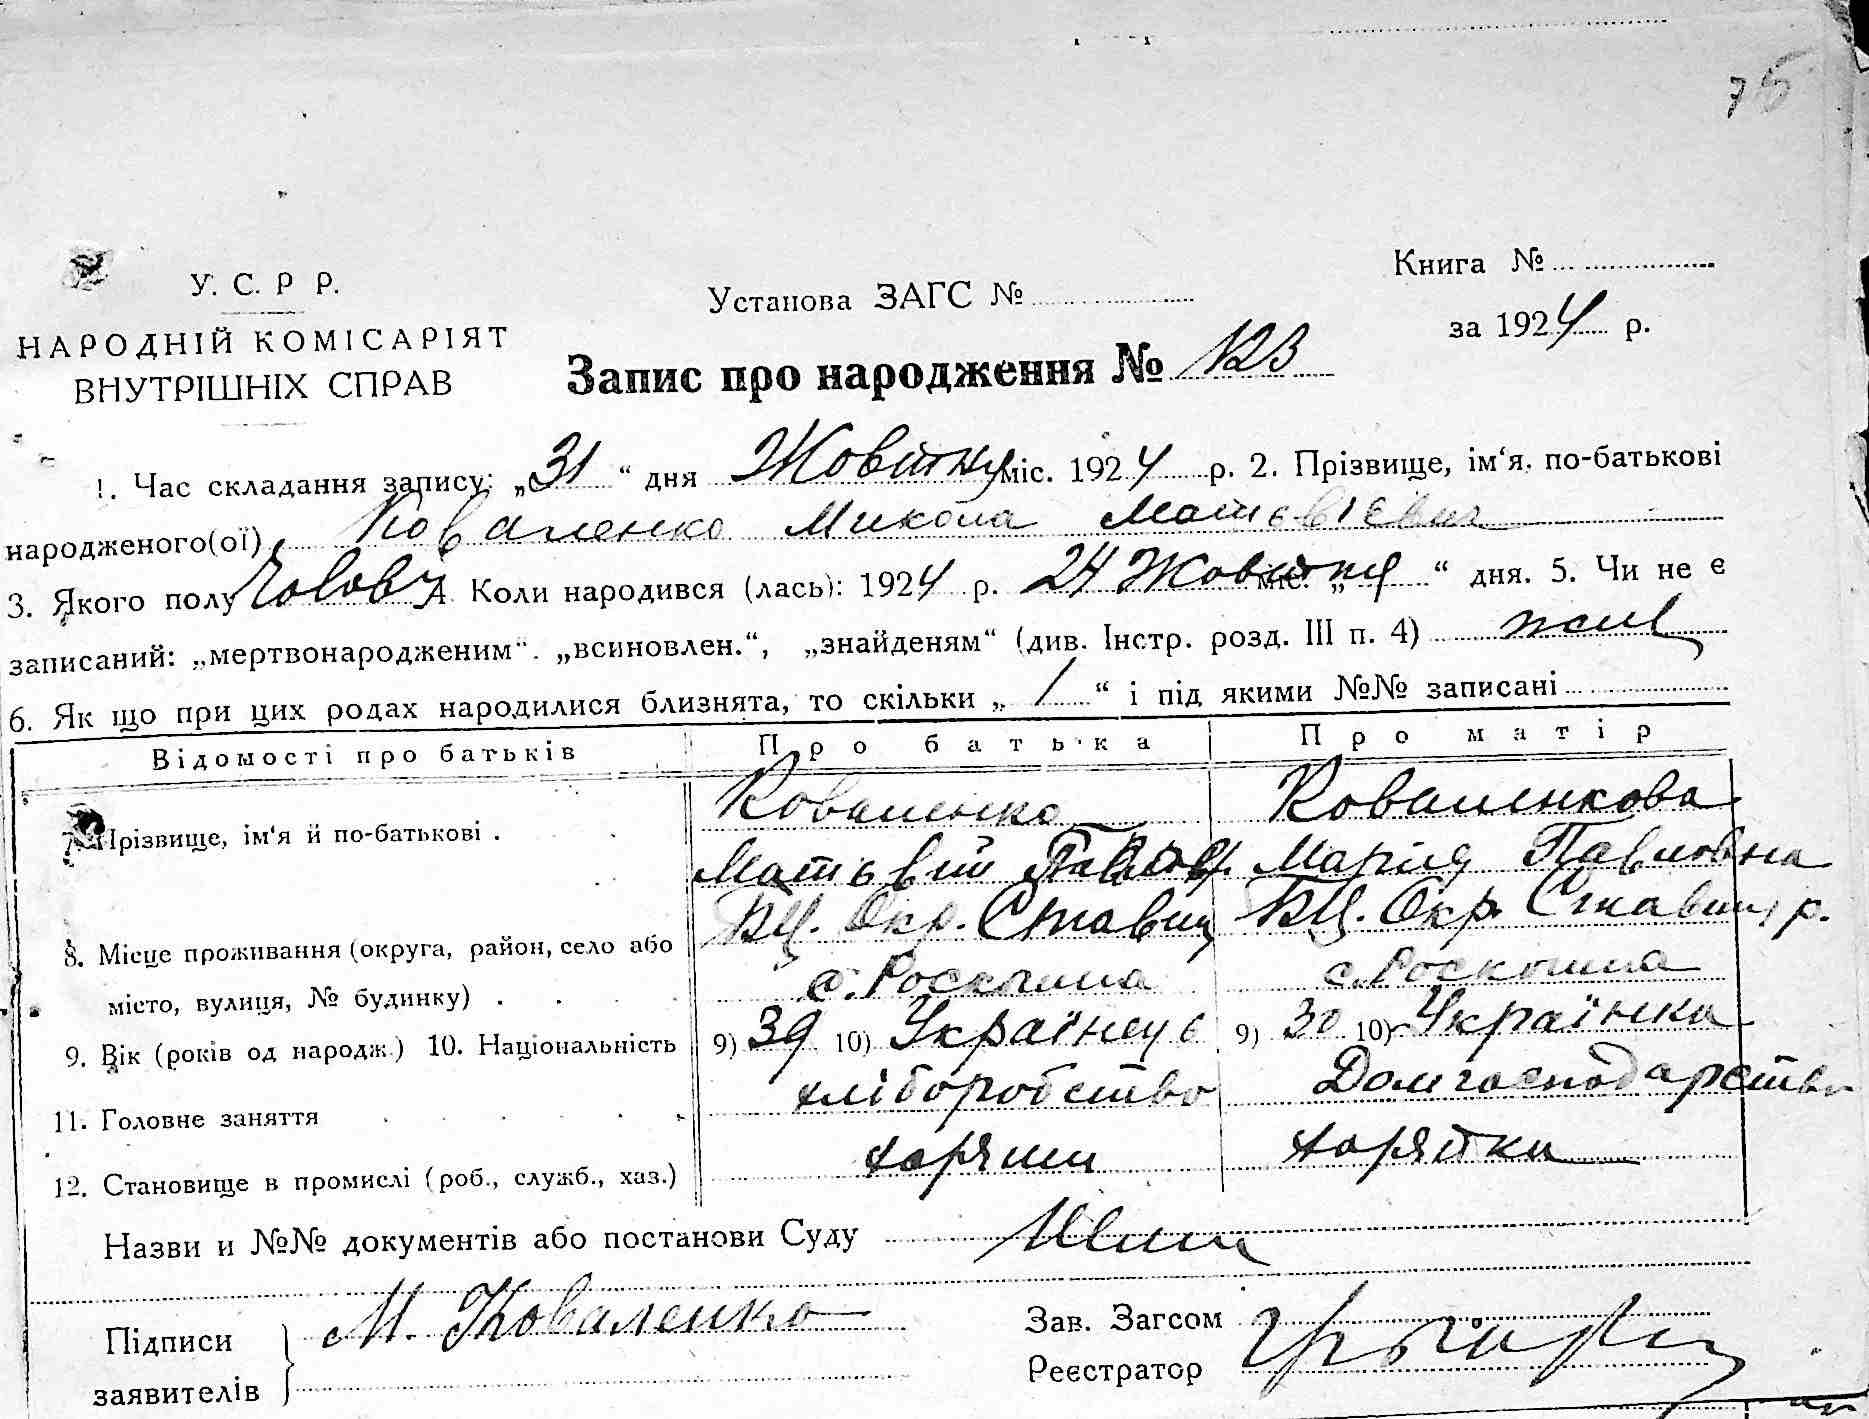 75
У. С. Р Р.
НАРОДНІЙ КОМІСАРІЯТ
ВНУТРІШНІХ СПРАВ
Установа ЗАГС №
Книга №
за 1924 р.
Запис про народження № 123
1. Час складання запису: „31“ дня Жовтня міс. 1924 р. 2. Прізвище, ім‘я, по-батькові
народженого(ої) Коваленко Микола Матьвієвич
3. Якого полу Чолов 4. Коли народився (лась): 1924 р. 24 Жовтня міс. „ “ дня. 5. Чи не є
записаний: „мертвонародженим“. „всиновлен.“, „знайденям“ (див. Інстр. розд. III п. 4)
6. Як що при цих родах народилися близнята, то скільки „ / “ і під якими №№ записані
Відомості про батьків Про батька Про матір
7. Прізвище, ім‘я й по-батькові . Коваленко Коваленкова
Матьвій Марія Павловна
8. Місце проживання (округа, район, село або БЦ. Окр. Ставищ БЦ. Окр. Ставищ р.
місто, вулиця, № будинку) . с. Роскошна с. Роскошна
9. Вік (років од народж.) 10. Національність 9) 39 10) Українець 9) 30 10) Українка
11. Головне заняття хліборобство Домгосподарство
12. Становище в промислі (роб., служб., хаз.)
Назви и №№ документів або постанови Суду
Підписи М. Коваленко Зав. Загсом
заявителів Реєстратор